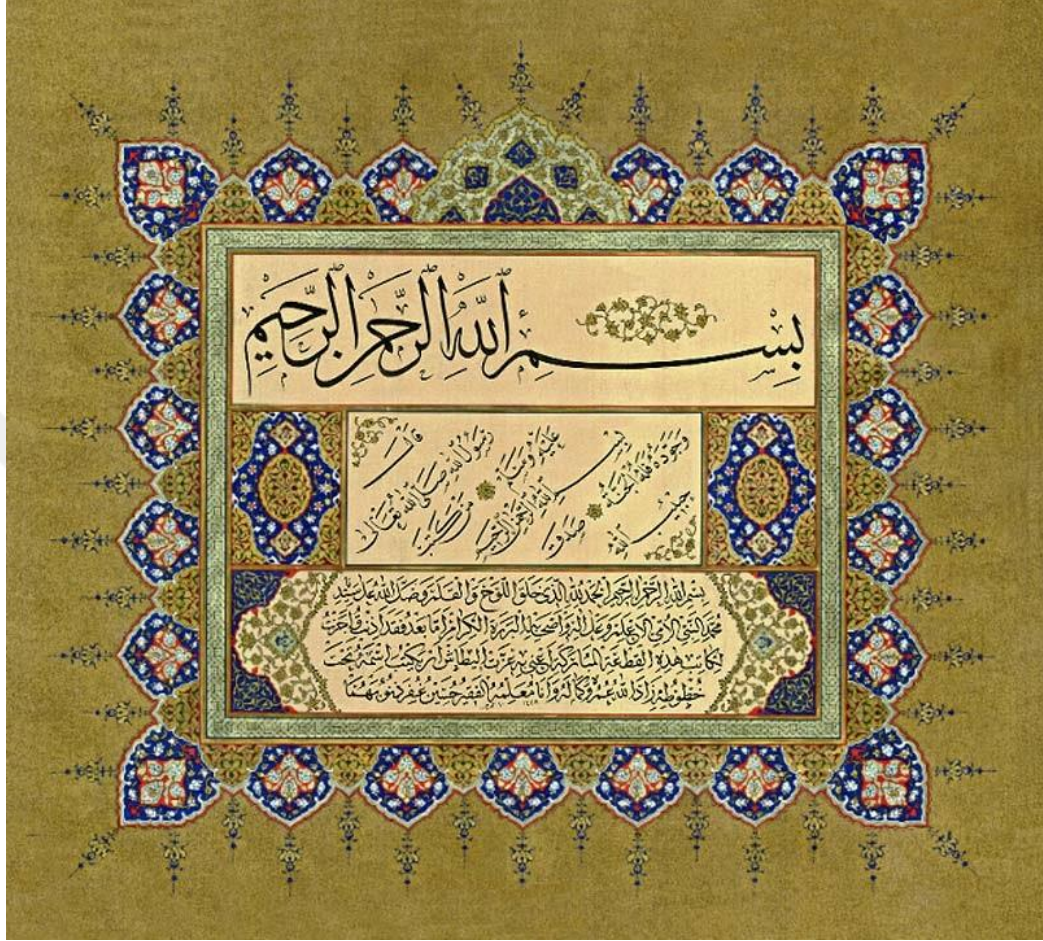 بسم الله الرحمن الرحيم
قال
رسول الله صلى الله تعالى
عليه وسلم من كتب
بسم الله الرحمن الرحيم
وجوده فله الجنة صدق
حبيب الله
بسم الله الرحمن الرحيم الحمد لله الذي خلق اللوح والقلم وصلى الله على سيد
محمد النبي الامي وعلى اله واصحابه البررة الكرام اما بعد فقد اذنت واجزت
لكاتب هذه القطعة المباركة اعني به عزت البطاش ان يكتب اسمه تحت
خطوطه زاد الله عمره وكماله وانا معلمه الفقير حسين غفر ذنوبهما